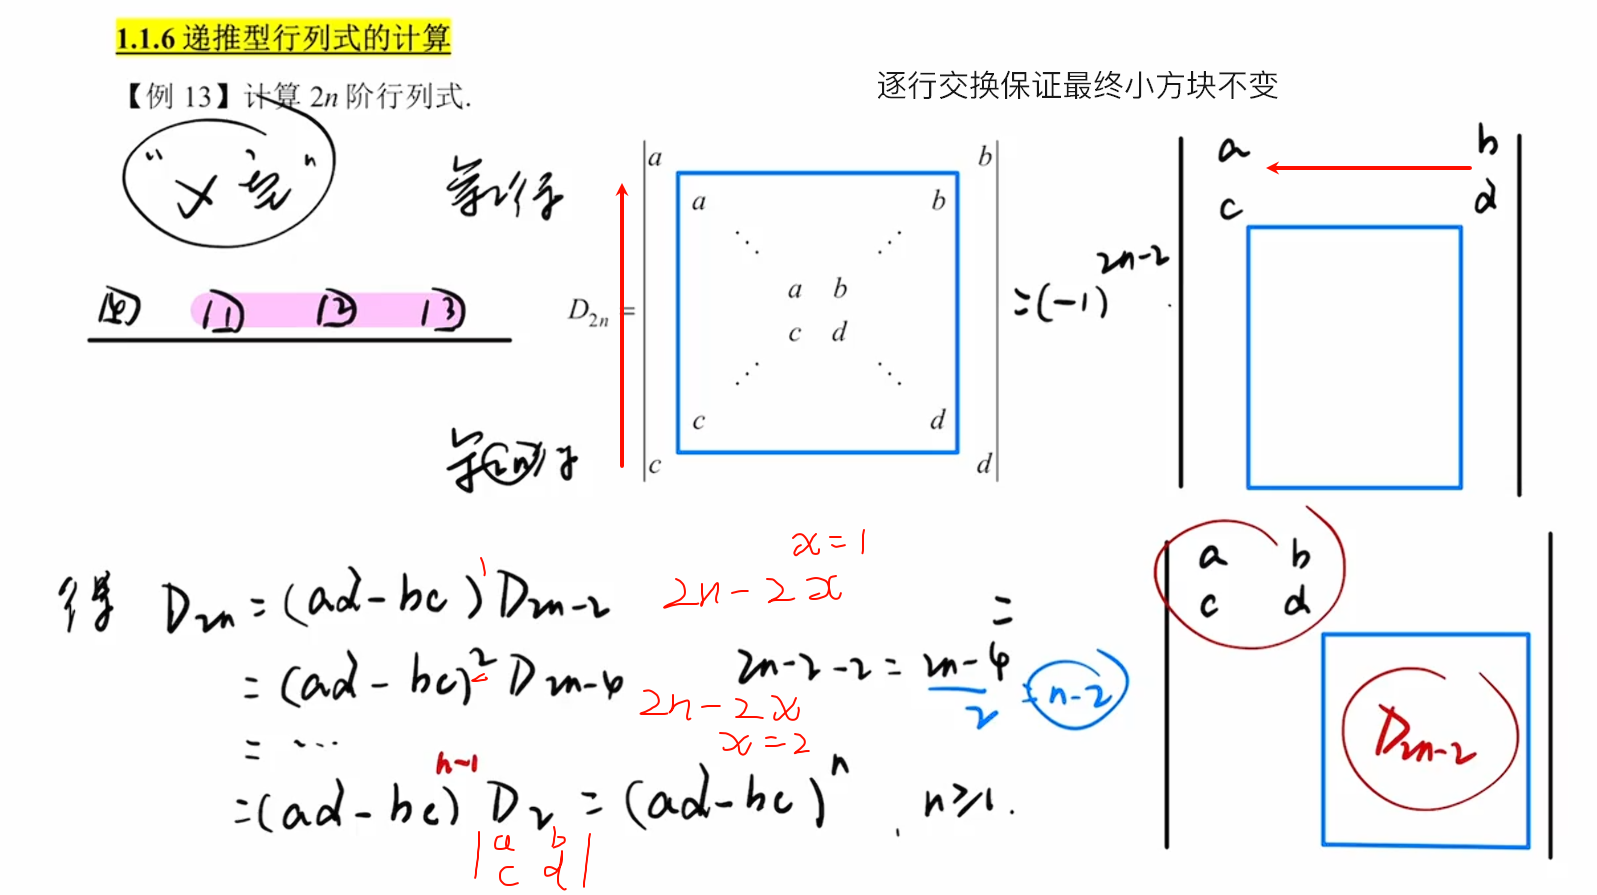 1.1.6 递推型行列式的计算
【例 13】计算 2n 阶行列式.
逐行交换保证最终小方块不变
"x 型"
第2行
④ ① ② ③
第2n行
D₂ₙ =
a b
a b
⋱ ⋰
a b
c d
⋰ ⋱
c d
c d
= (-1)²ⁿ⁻² ·
a b
c d
=
a b
c d
D₂ₙ₋₂
得 D₂ₙ = (ad-bc)¹ D₂ₙ₋₂
x = 1
2n - 2x
= (ad-bc)² D₂ₙ₋₄
2n-2-2 = 2n-4
2
= n-2
2n - 2x
x = 2
= ...
= (ad-bc)ⁿ⁻¹ D₂ = (ad-bc)ⁿ , n≥1.
a b
c d